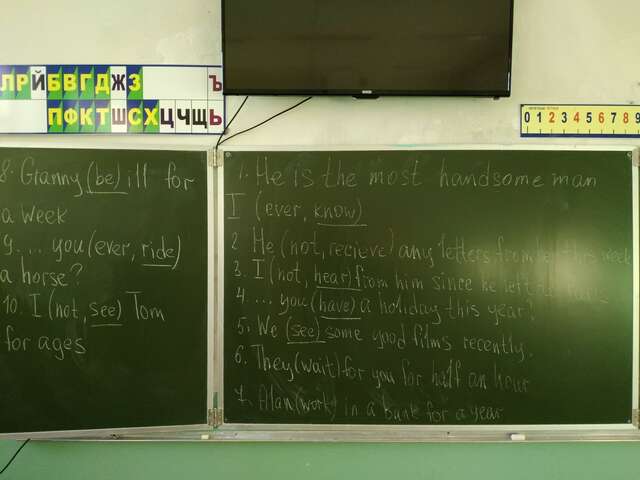 ЛРЙБВГДЖЗ Ъ
ПФКТШСХЦЧЩЬ
0 1 2 3 4 5 6 7 8 9
8. Granny (be) ill for
a week
9. ... you (ever, ride)
a horse?
10. I (not, see) Tom
for ages
1. He is the most handsome man
I (ever, know)
2 He (not, recieve) any letters from her this week
3. I (not, hear) from him since he left
4 ... you (have) a holiday this year?
5. We (see) some good films recently.
6. They (wait) for you for half an hour
7. Alan (work) in a bank for a year